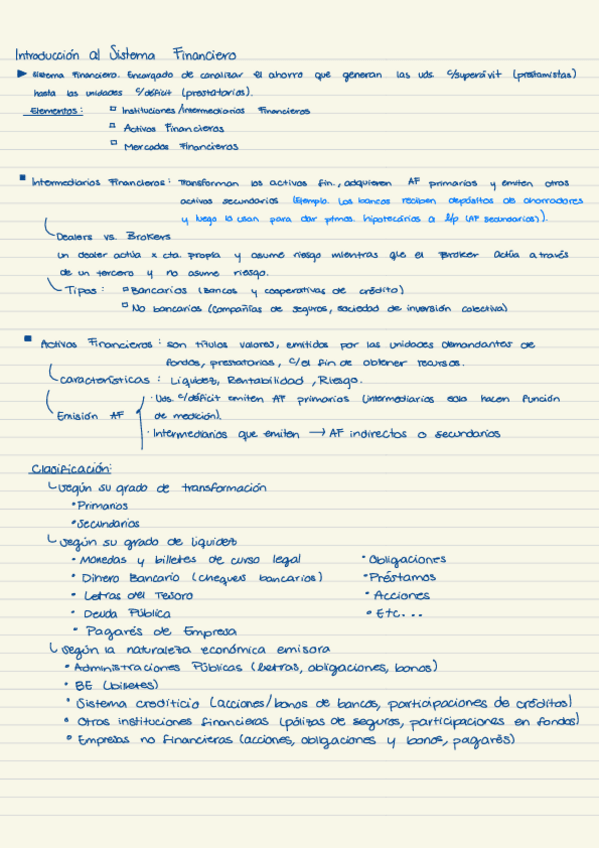 Introducción al Sistema Financiero
► Sistema Financiero. Encargado de canalizar el ahorro que generan las uds. c/superávit (prestamistas)
hasta las unidades c/déficit (prestatarios).
Elementos: □ Instituciones/Intermediarios Financieros
□ Activos Financieros
□ Mercados Financieros
▪ Intermediarios Financieros: Transforman los activos fin., adquieren AF primarios y emiten otros
activos secundarios (Ejemplo. Los bancos reciben depósitos de ahorradores
y luego lo usan para dar ptmos. hipotecarios a l/p (AF secundarios)).
Dealers vs. Brokers
un dealer actúa x cta. propia y asume riesgo mientras que el Broker actúa a través
de un tercero y no asume riesgo.
Tipos: □ Bancarios (Bancos y cooperativas de crédito)
□ No bancarios (Compañías de seguros, sociedad de inversión colectiva)
▪ Activos Financieros: son títulos valores, emitidos por las unidades demandantes de
fondos, prestatarios, c/el fin de obtener recursos.
características: Liquidez, Rentabilidad, Riesgo.
· Uds. c/déficit emiten AF primarios (intermediarios solo hacen función
Emisión AF de medición).
· Intermediarios que emiten → AF indirectos o secundarios
Clasificación:
según su grado de transformación
• Primarios
• Secundarios
según su grado de liquidez
• Monedas y billetes de curso legal • Obligaciones
• Dinero Bancario (cheques bancarios) • Préstamos
• Letras del Tesoro • Acciones
• Deuda Pública • Etc...
• Pagarés de Empresa
según la naturaleza económica emisora
• Administraciones Públicas (letras, obligaciones, bonos)
• BE (billetes)
• Sistema crediticio (acciones/bonos de bancos, participaciones de créditos)
• Otras instituciones financieras (pólizas de seguros, participaciones en fondos)
• Empresas no financieras (acciones, obligaciones y bonos, pagarés)